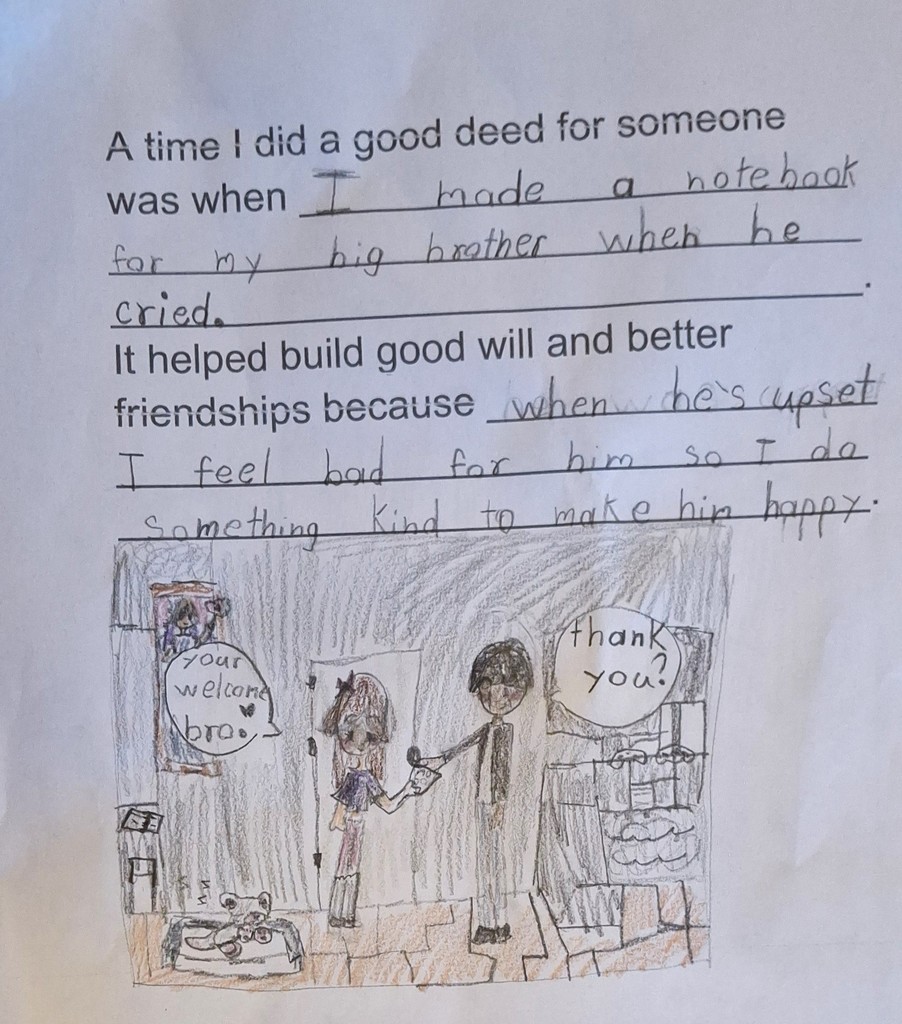 A time I did a good deed for someone
was when I made a notebook
for my big brother when he
cried. .
It helped build good will and better
friendships because when he's upset
I feel bad for him so I do
something kind to make him happy.
your
welcome
bro.
thank
you?